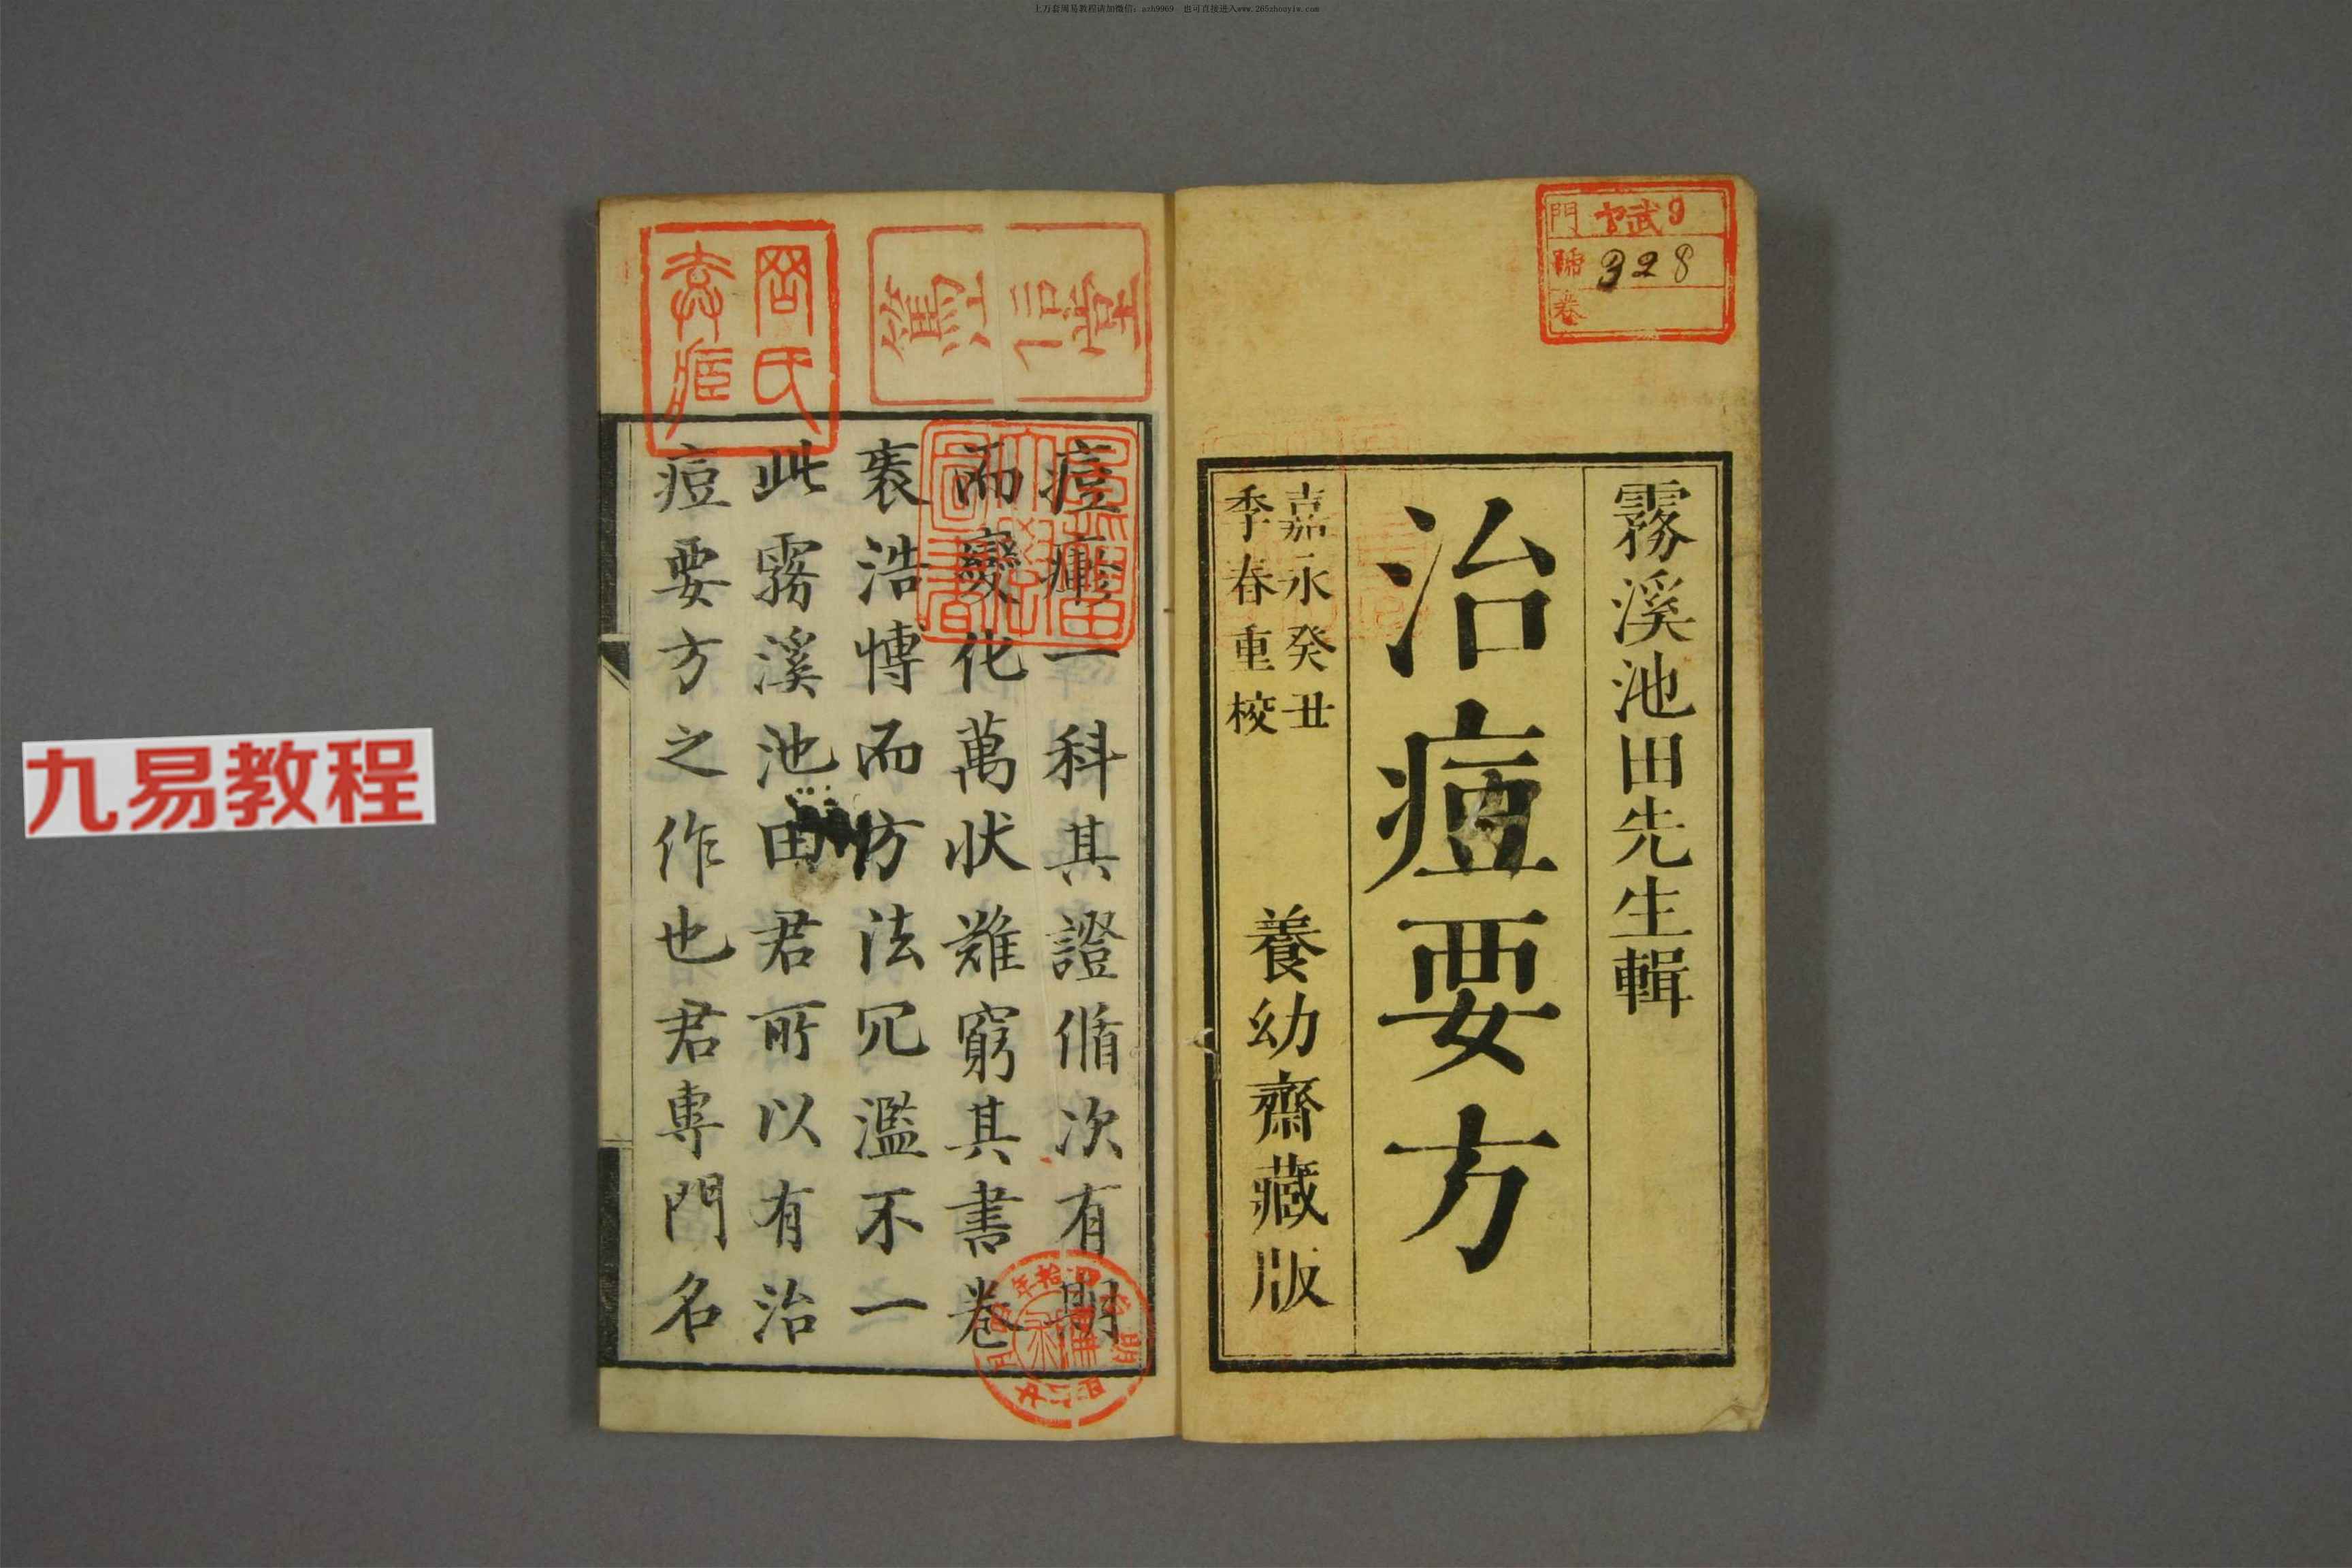 上万套周易教程请加微信：azh9969 也可直接进入www.265zhouyiw.com
門 武9
號 328
卷
霧溪池田先生輯
治痘要方
嘉永癸丑
季春重校
養幼齋藏版
痘 一科其證脩次有期
而變化萬狀難窮其書卷
袠浩愽而方法冗濫不一
此霧溪池田君所以有治
痘要方之作也君專門名
九易教程